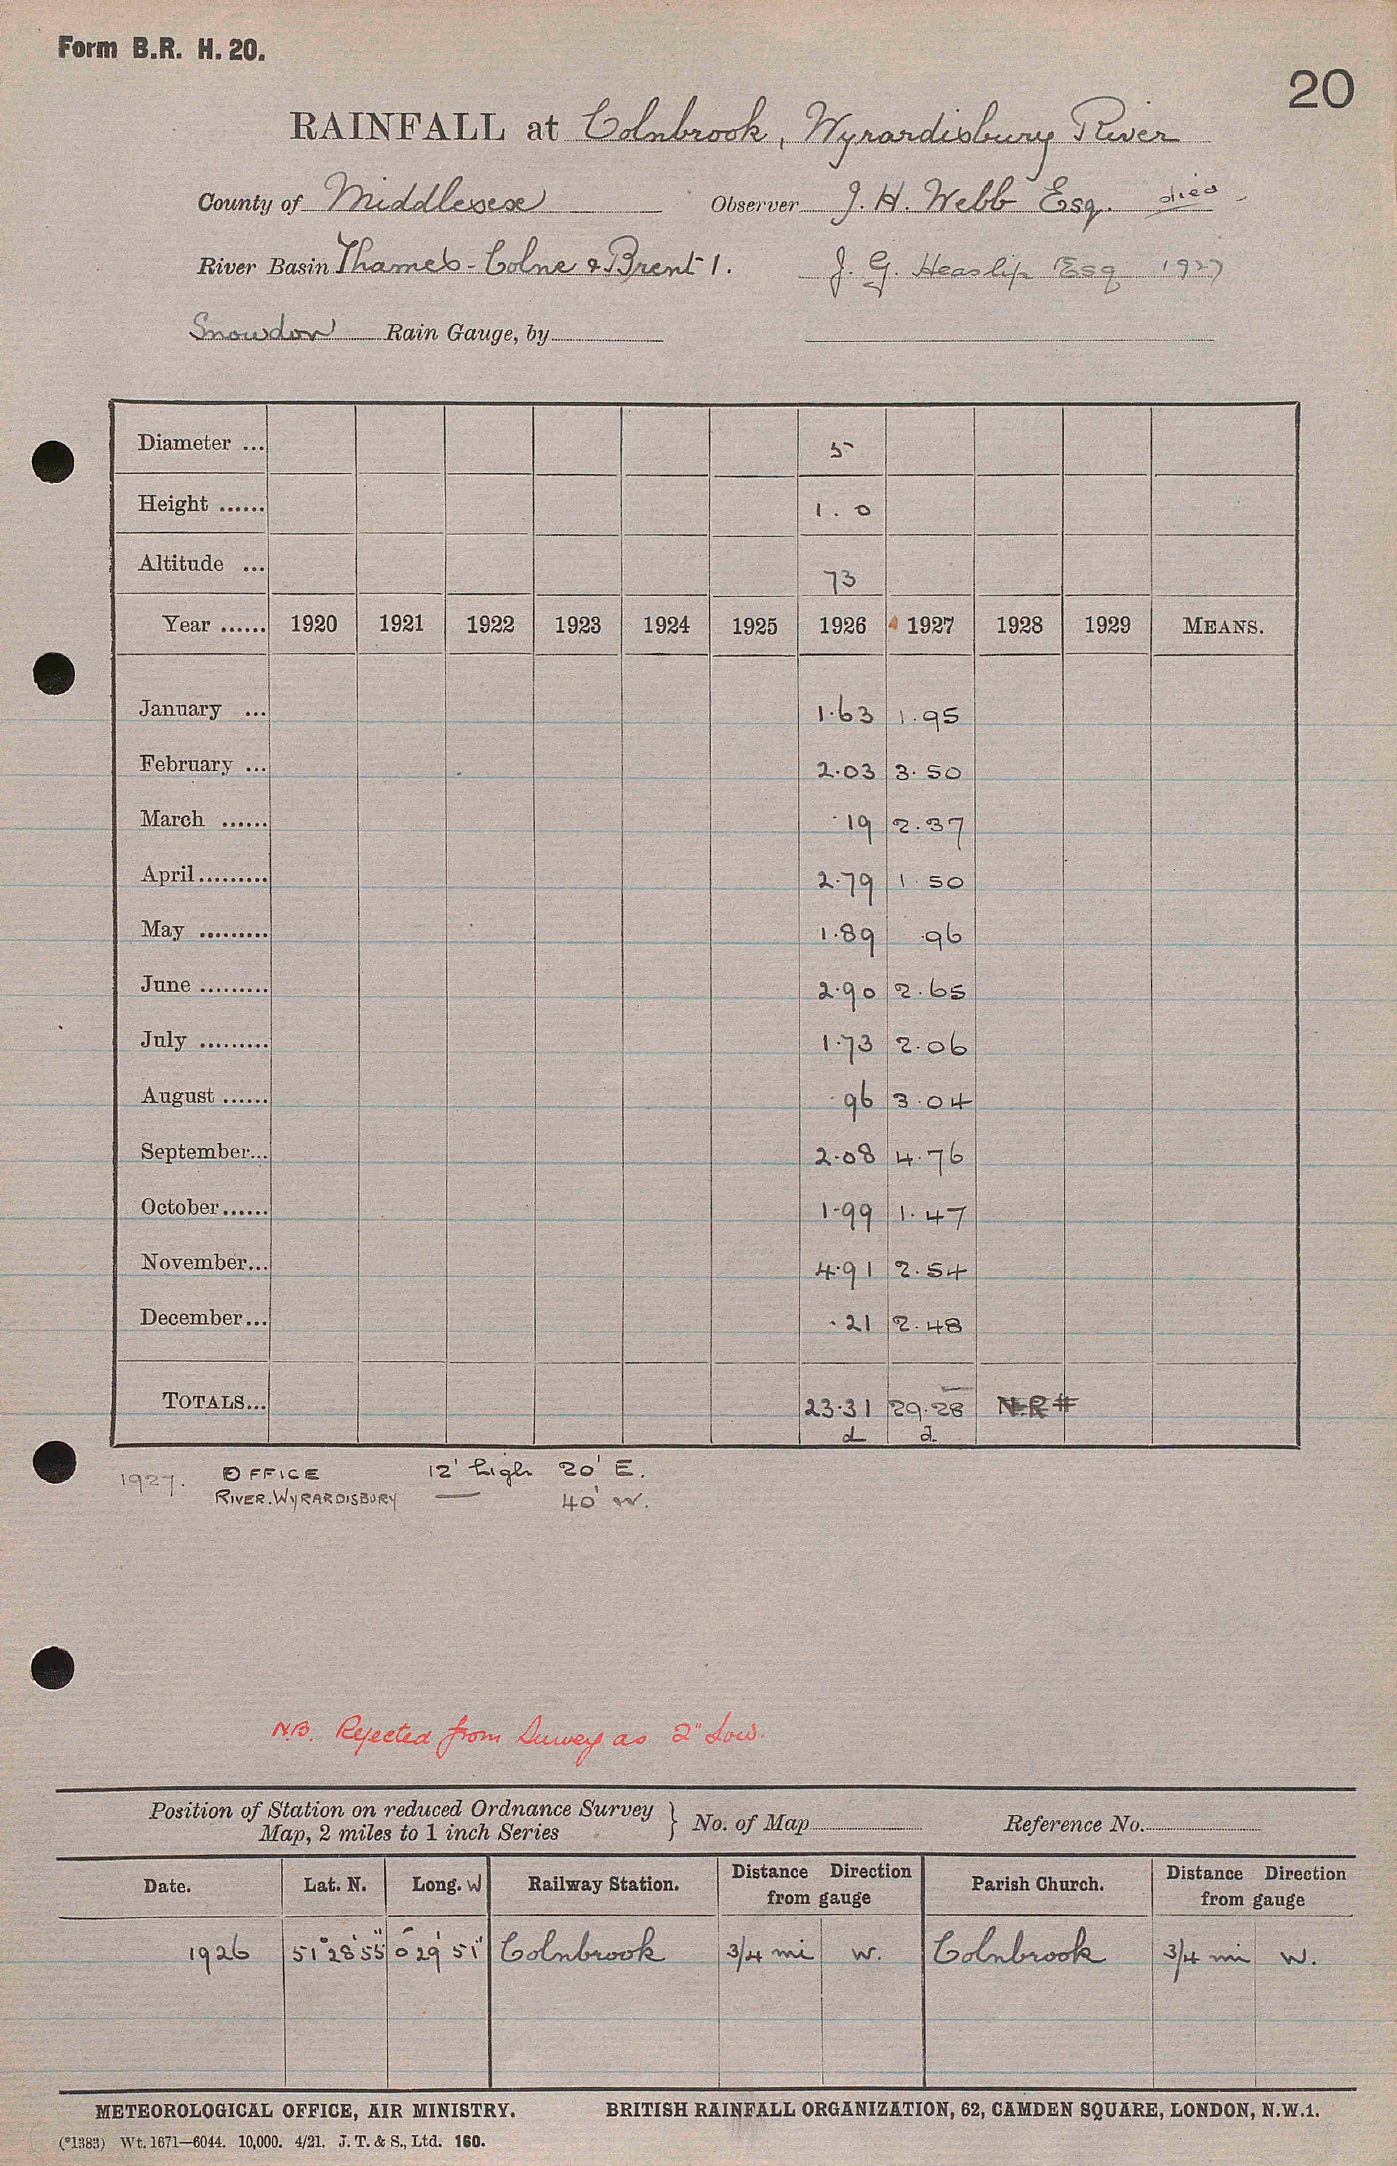 Form B.R. H. 20.
20
RAINFALL at Colnbrook, Wyrardisbury River
County of Middlesex Observer J. H. Webb Esq. died
River Basin Thames - Colne & Brent 1. J. G. Heaslip Esq 1927
Snowdon Rain Gauge, by
Diameter ... 5
Height ...... 1.0
Altitude ... 73
Year ...... 1920 1921 1922 1923 1924 1925 1926 1927 1928 1929 MEANS.
January ... 1.63 1.95
February ... 2.03 3.50
March ...... .19 2.37
April ......... 2.79 1.50
May ......... 1.89 .96
June ......... 2.90 2.65
July ......... 1.73 2.06
August ...... .96 3.04
September... 2.08 4.76
October ...... 1.99 1.47
November... 4.91 2.54
December ... .21 2.48
TOTALS... 23.31 29.28 N.R #
d d
1927. OFFICE 12' high 20' E.
RIVER.WYRARDISBURY — 40' W.
N.B. Rejected from Survey as 2" low.
Position of Station on reduced Ordnance Survey
Map, 2 miles to 1 inch Series } No. of Map Reference No.
Date. Lat. N. Long. W Railway Station. Distance Direction from gauge Parish Church. Distance Direction from gauge
1926 51° 28' 55" 0° 29' 51" Colnbrook 3/4 mi W. Colnbrook 3/4 mi W.
METEOROLOGICAL OFFICE, AIR MINISTRY. BRITISH RAINFALL ORGANIZATION, 62, CAMDEN SQUARE, LONDON, N.W.1.
(*1383) Wt. 1671—6044. 10,000. 4/21. J. T. & S., Ltd. 160.